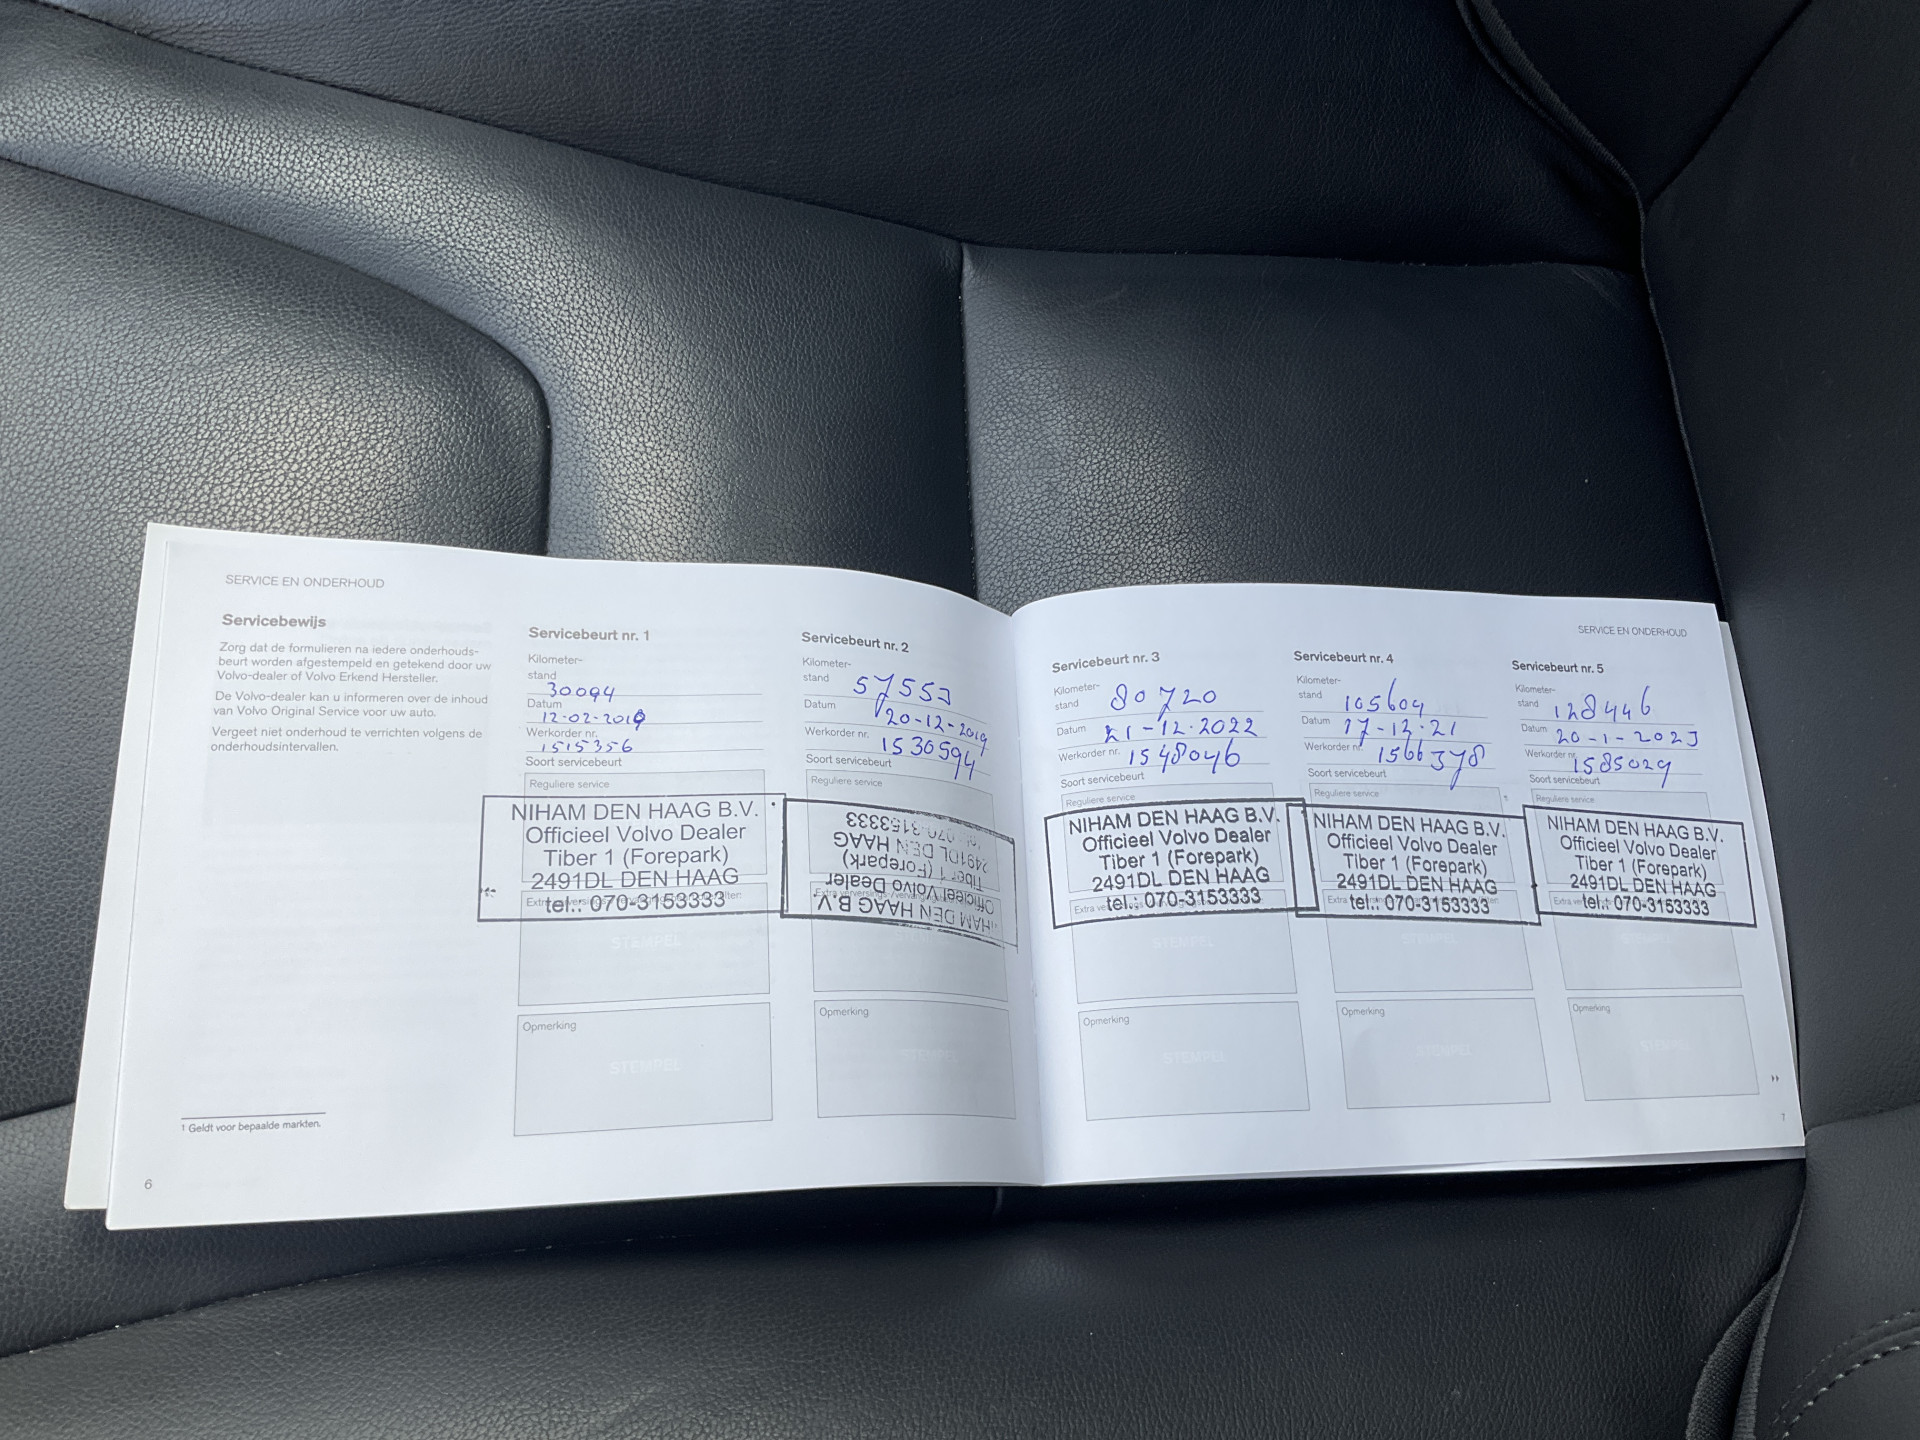 SERVICE EN ONDERHOUD
Servicebewijs
Zorg dat de formulieren na iedere onderhouds-
beurt worden afgestempeld en getekend door uw
Volvo-dealer of Volvo Erkend Hersteller.
De Volvo-dealer kan u informeren over de inhoud
van Volvo Original Service voor uw auto.
Vergeet niet onderhoud te verrichten volgens de
onderhoudsintervallen.
1 Geldt voor bepaalde markten.
6
Servicebeurt nr. 1
Kilometer-
stand
30094
Datum
12-02-2019
Werkorder nr.
1515356
Soort servicebeurt
Reguliere service
NIHAM DEN HAAG B.V.
Officieel Volvo Dealer
Tiber 1 (Forepark)
2491DL DEN HAAG
tel.: 070-3153333
STEMPEL
Opmerking
STEMPEL
Servicebeurt nr. 2
Kilometer-
stand
57553
Datum
20-12-2019
Werkorder nr.
1530594
Soort servicebeurt
Reguliere service
HAM DEN HAAG B.V.
Officieel Volvo Dealer
Tiber 1 (Forepark)
2491DL DEN HAAG
070-3153333
STEMPEL
Opmerking
STEMPEL
SERVICE EN ONDERHOUD
Servicebeurt nr. 3
Kilometer-
stand
80720
Datum
21-12-2022
Werkorder nr.
1548046
Soort servicebeurt
Reguliere service
NIHAM DEN HAAG B.V.
Officieel Volvo Dealer
Tiber 1 (Forepark)
2491DL DEN HAAG
tel.: 070-3153333
STEMPEL
Opmerking
STEMPEL
Servicebeurt nr. 4
Kilometer-
stand
105604
Datum
17-12-21
Werkorder nr.
1566378
Soort servicebeurt
Reguliere service
NIHAM DEN HAAG B.V.
Officieel Volvo Dealer
Tiber 1 (Forepark)
2491DL DEN HAAG
tel.: 070-3153333
STEMPEL
Opmerking
STEMPEL
Servicebeurt nr. 5
Kilometer-
stand
128446
Datum
20-1-2023
Werkorder nr.
1585029
Soort servicebeurt
Reguliere service
NIHAM DEN HAAG B.V.
Officieel Volvo Dealer
Tiber 1 (Forepark)
2491DL DEN HAAG
tel.: 070-3153333
STEMPEL
Opmerking
STEMPEL
7